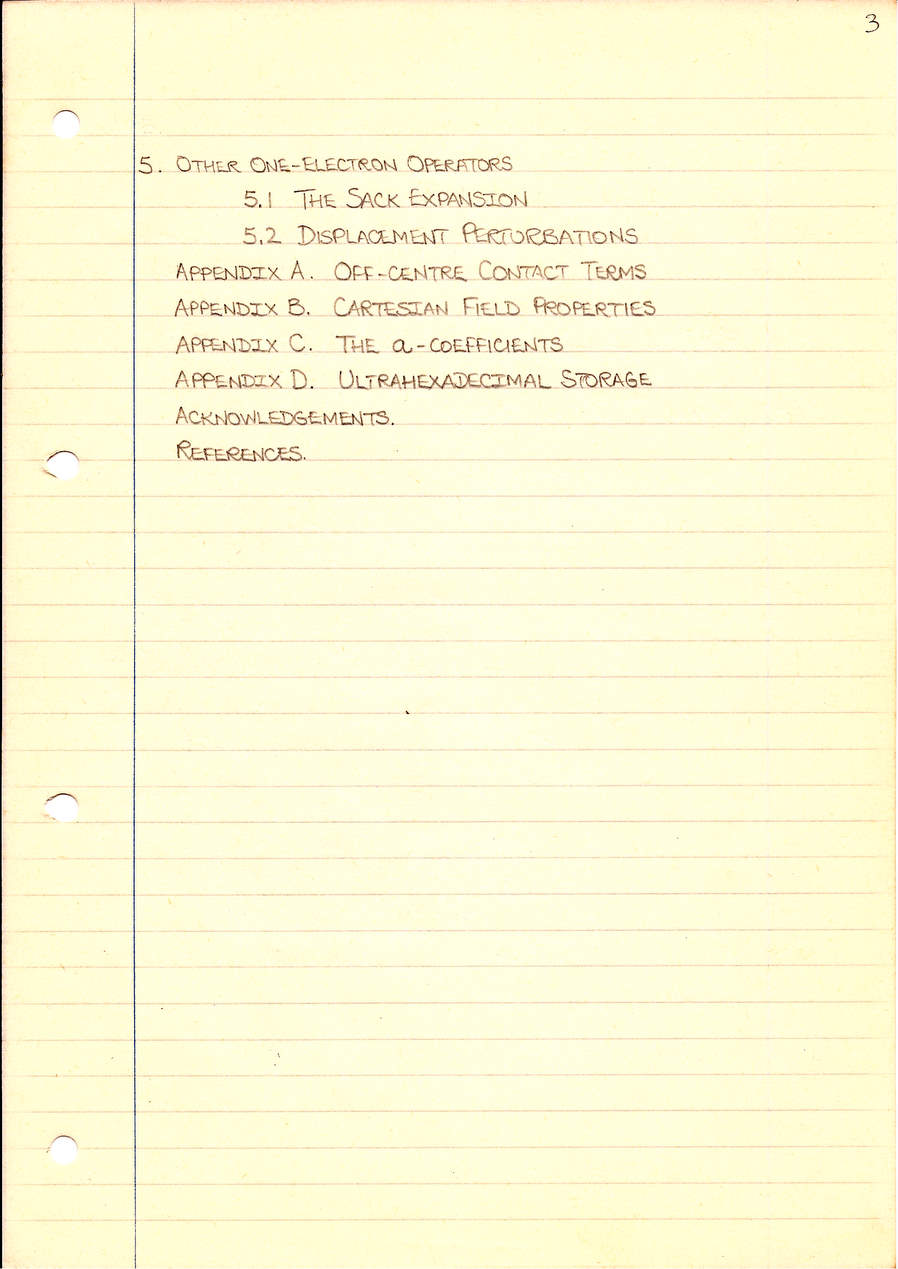 3
5. OTHER ONE-ELECTRON OPERATORS
5.1 THE SACK EXPANSION
5.2 DISPLACEMENT PERTURBATIONS
APPENDIX A. OFF-CENTRE CONTACT TERMS
APPENDIX B. CARTESIAN FIELD PROPERTIES
APPENDIX C. THE a-COEFFICIENTS
APPENDIX D. ULTRAHEXADECIMAL STORAGE
ACKNOWLEDGEMENTS.
REFERENCES.